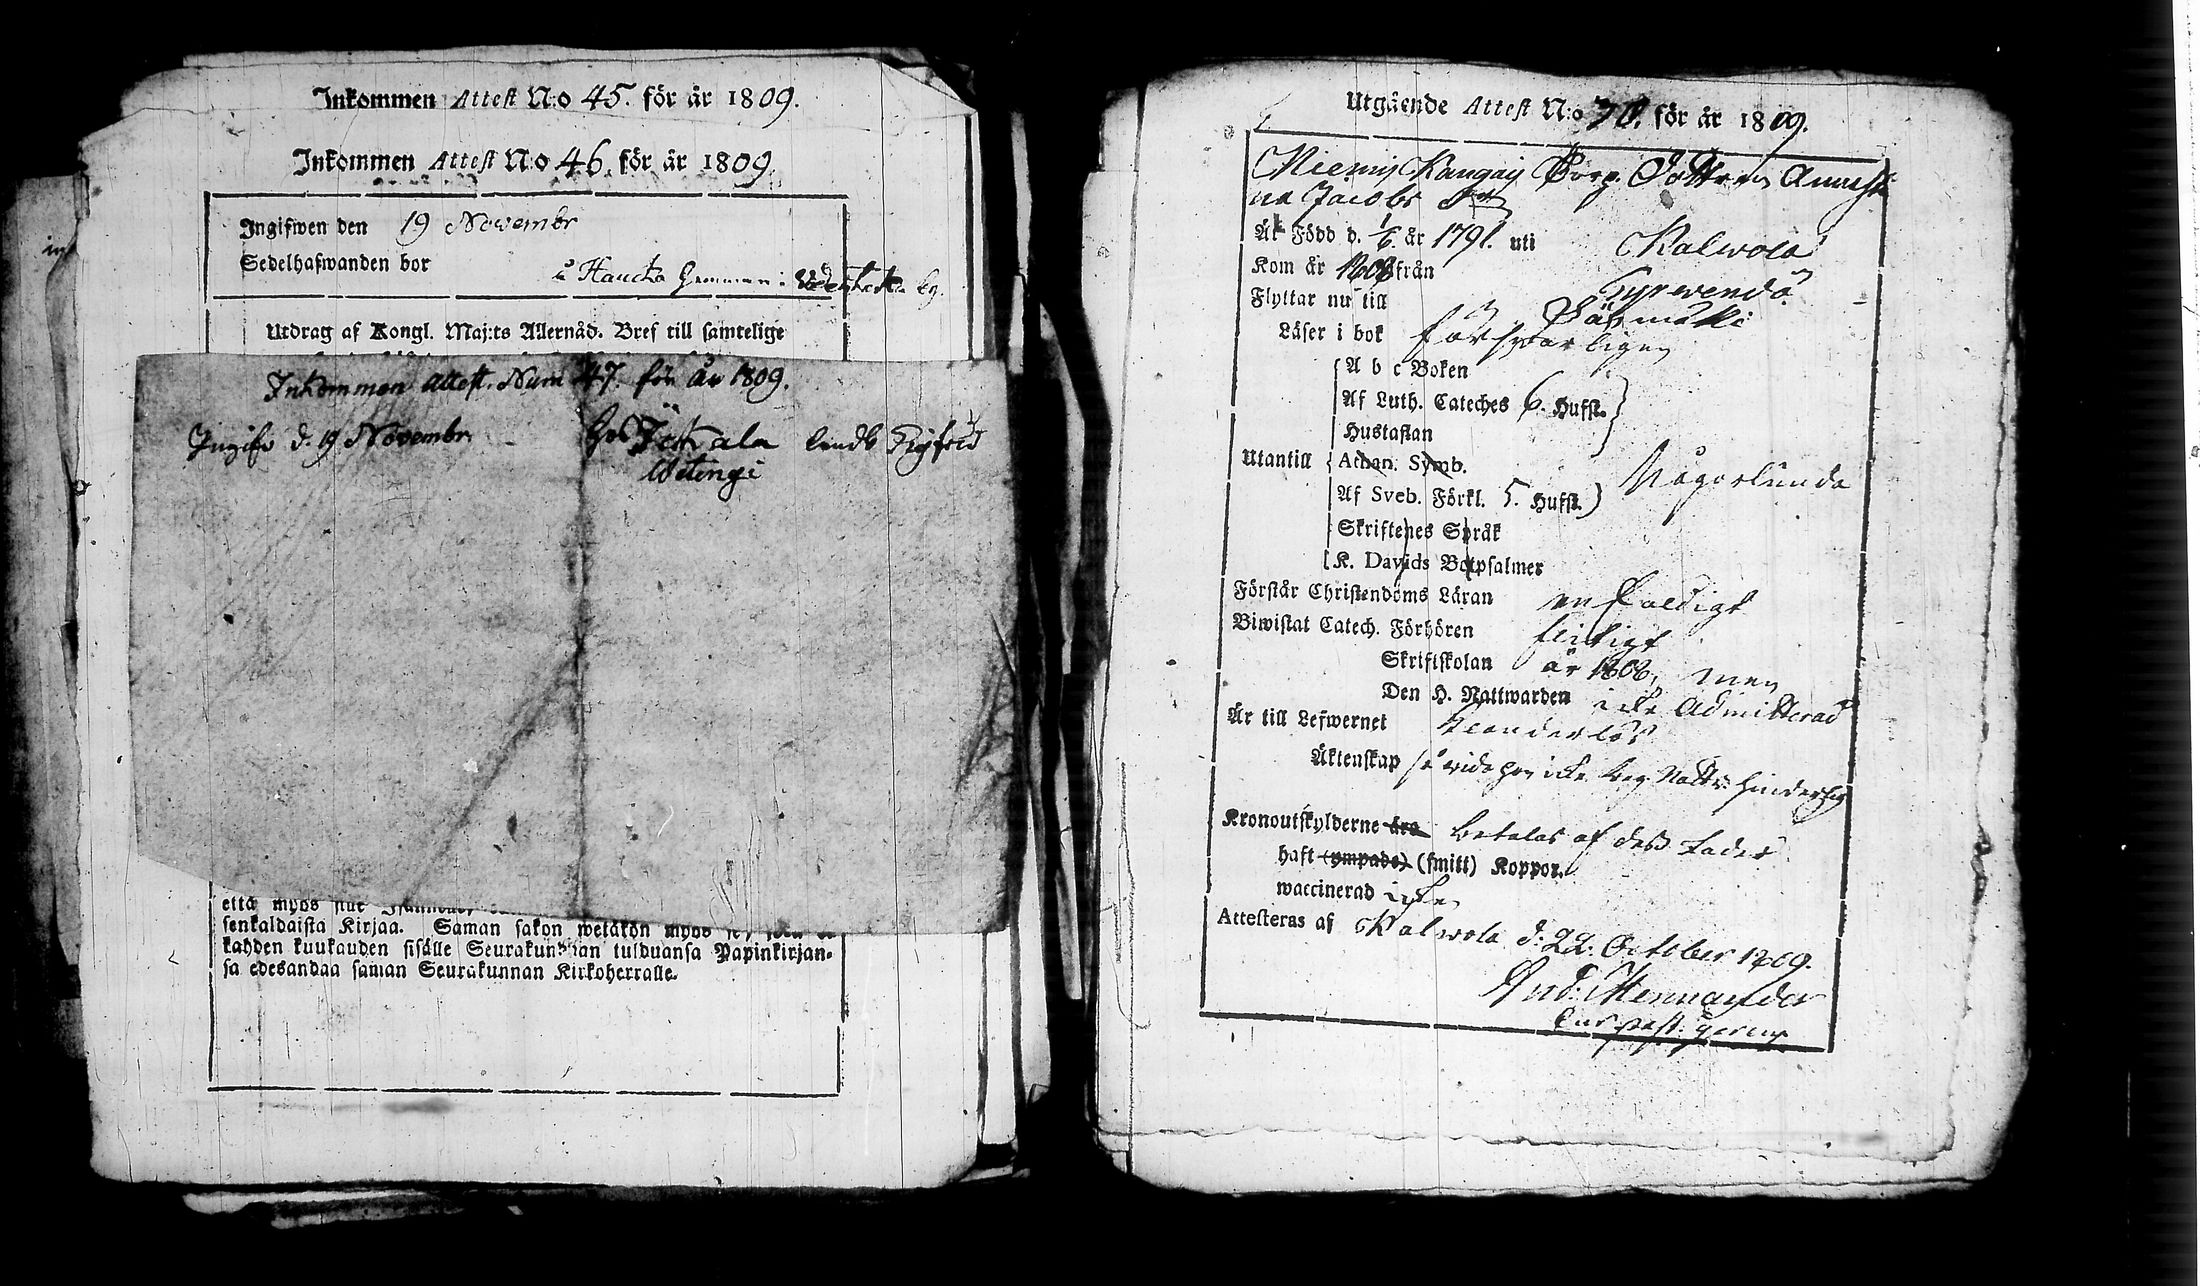 Inkommen Attest N:o 45. för år 1809.
Inkommen Attest N:o 46. för år 1809.
Ingifwen den 19 Novembr
Sedelhafwanden bor
Utdrag af Kongl. Maj:ts Allernåd. Bref till samtelige
Inkommen Attest. Num 47. för år 1809.
Ingifv. d. 19 Novembr. hos
ettå myös
senkaldaista Kirjaa. Saman sakon wetäkön myös
kahden kuukauden sisälle Seurakunnan tulduansa Papinkirjan-
sa edesandaa saman Seurakunnan Kirkoherralle.
Utgående Attest N:o 70. för år 1809.
Niemis Kangas Dottren
na Jacobs
Är Född d. 1/6 år 1791. uti Kalwola
Kom år 1808 från
Flyttar nu till Säxmäki
Läser i bok försvarligen
A b c Boken
Af Luth. Cateches 6. Hufst.
Hustaflan
Utantill Athan. Symb. Någorlunda
Af Sveb. Förkl. 5. Hufst.
Skriftenes Språk
K. Davids Botpsalmer
Förstår Christendoms Läran enfaldigt
Biwistat Catech. Förhören flitigt
Skriftskolan år 1808, men
Den H. Nattwarden icke Admitterad
Är till Lefwernet klanderlös
Äktenskap
Kronoutskylderne äro betalas af dess Fader
haft (ympade) (smitt) Koppor.
waccinerad icke
Attesteras af Kalwola d: 22. October 1809.
And: Mennander